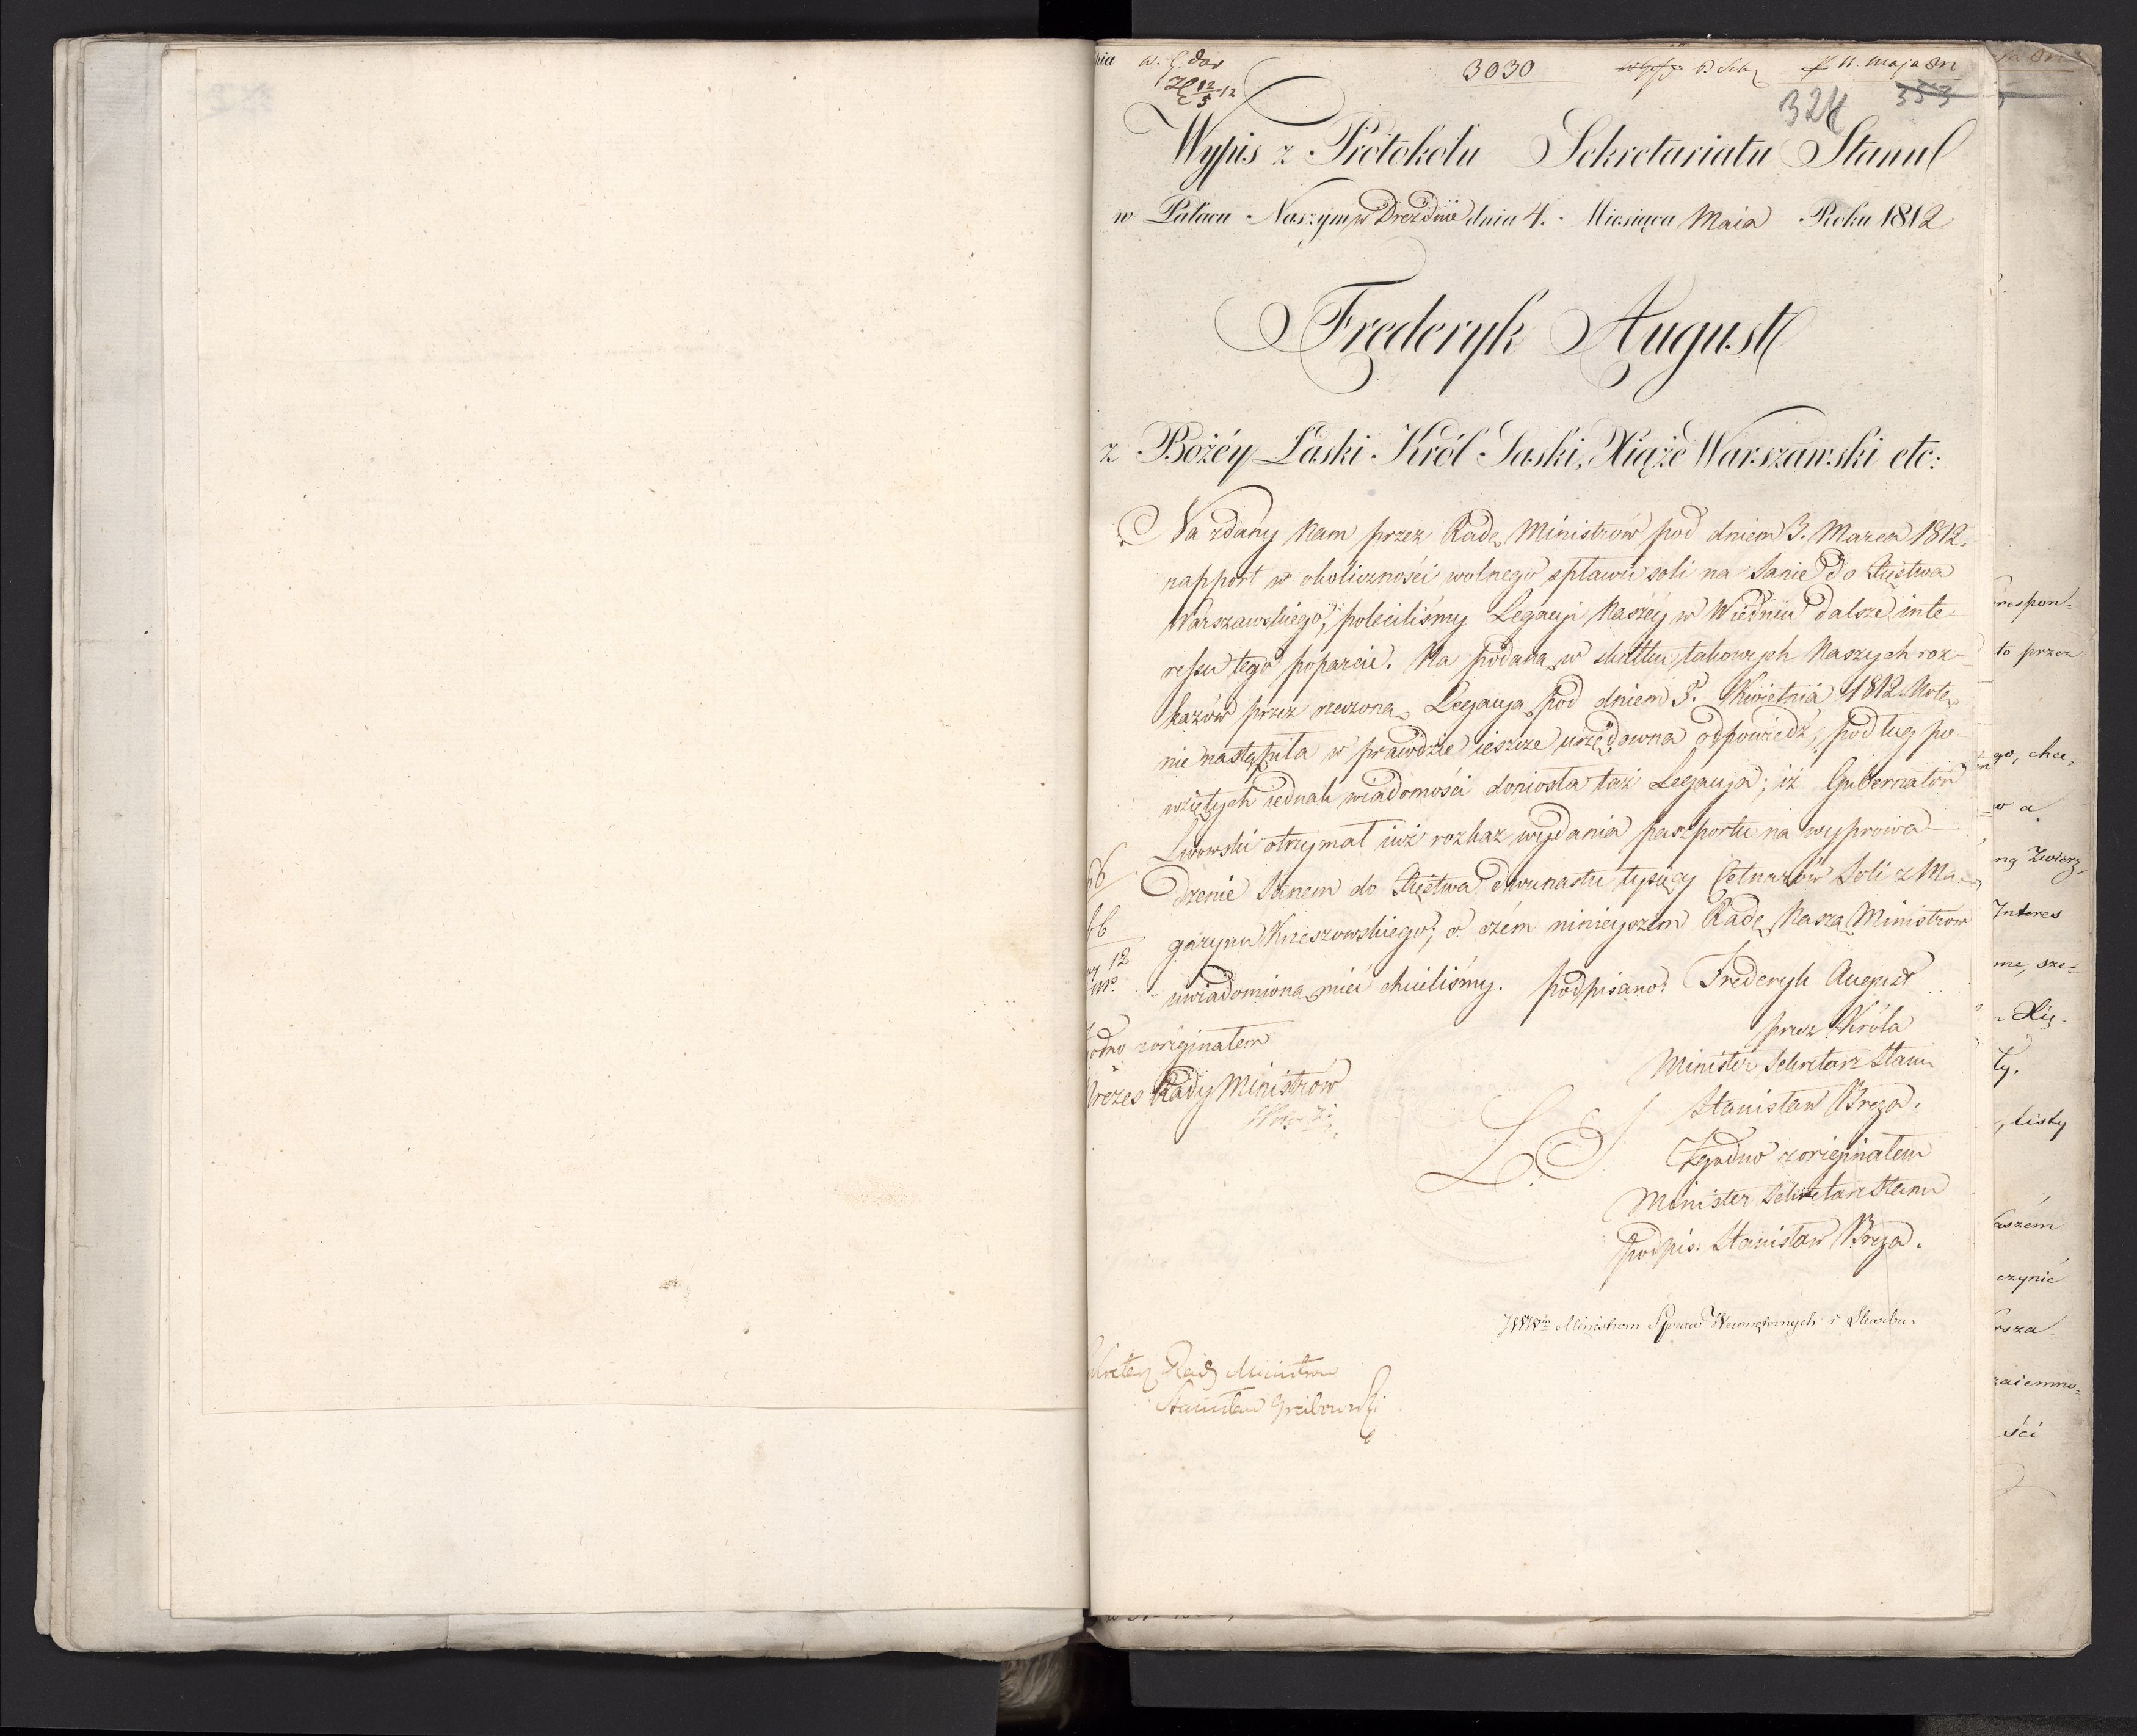 3030
11 Maja
324
353
Wypis z Protokolu Sekretariatu Stanu
w Pałacu Naszym w Dreźdnie dnia 4. Miesiąca Maia Roku 1812
Frederyk August
z Bożéy Łaski Król Saski, Xiąże Warszawski etc:
Na zdany Nam przez Radę Ministrów pod dniem 3. Marca 1812.
rapport w okoliczności wolnego spławu soli na Sanie do Xięstwa
Warszawskiego, poleciliśmy Legacyi Naszéy w Wiedniu dalsze inte-
ressu tego poparcie. Na podaną w skutku takowych Naszych roz-
kazów przez rzeczoną Legacyą pod dniem 5. Kwietnia 1812 Notę
nie nastąpiła w prawdzie ieszcze urzędowna odpowiedź, podług po-
wziętych iednak wiadomości doniosła taż Legacya; iż Gubernator
Lwowski otrzymał iuż rozkaz wydania paszportu na wyprowa-
dzenie Sanem do Xięstwa dwunastu tysięcy Cetnarów Soli z Ma-
gazynu Krzeszowskiego; o czém ninieyszem Radę Naszą Ministrów
uwiadomioną mieć chcieliśmy. podpisano: Frederyk August
przez Króla
Minister Sekretarz Stanu
Stanisław Breza.
L. S.
Zgodno z originałem
Minister Sekretarz Stanu
podpis. Stanisław Breza.
z originałem
Prezes Rady Ministrów
Ministrom Spraw Wewnętrznych i Skarbu.
Sekretarz Rady Ministrów
Stanisław Grabowski
respon-
to przez
go, chce,
w a
Interes
me, sze-
Xię-
ty.
, listy
aszém
czynić
rsza-
zaiemno-
ści